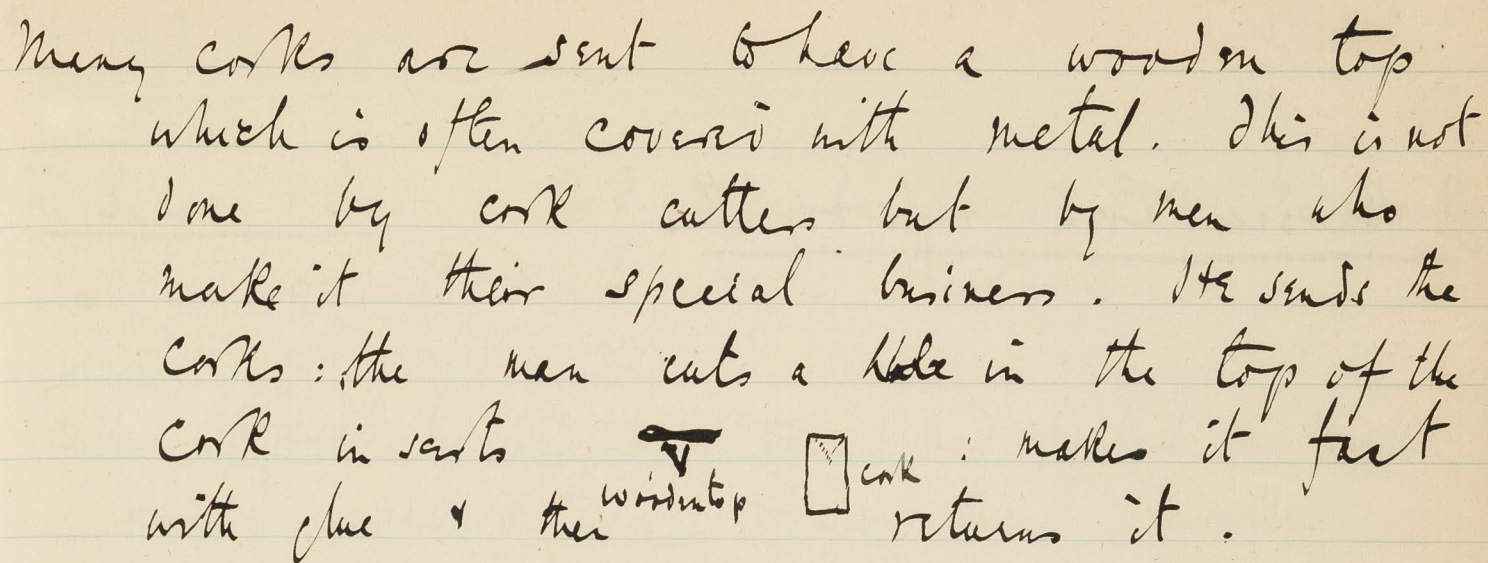 Many corks are sent to have a wooden top
which is often covered with metal. This is not
done by cork cutters but by men who
make it their special business. He sends the
corks: the man cuts a hole in the top of the
cork inserts : makes it fast
wooden top cork
with glue & then returns it.